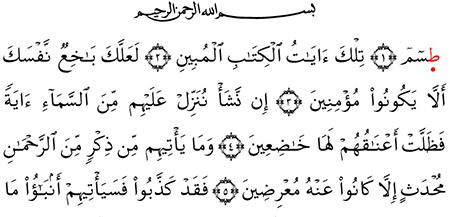 بسم الله الرحمن الرحيم
طسٓمٓ ﴿١﴾ تِلْكَ ءَايَاتُ الْكِتَابِ الْمُبِينِ ﴿٢﴾ لَعَلَّكَ بَاخِعٌ نَّفْسَكَ
أَلَّا يَكُونُوا۟ مُؤْمِنِينَ ﴿٣﴾ إِن نَّشَأْ نُنَزِّلْ عَلَيْهِم مِّنَ السَّمَآءِ ءَايَةً
فَظَلَّتْ أَعْنَاقُهُمْ لَهَا خَاضِعِينَ ﴿٤﴾ وَمَا يَأْتِيهِم مِّن ذِكْرٍ مِّنَ الرَّحْمَـٰنِ
مُحْدَثٍ إِلَّا كَانُوا۟ عَنْهُ مُعْرِضِينَ ﴿٥﴾ فَقَدْ كَذَّبُوا۟ فَسَيَأْتِيهِمْ أَنۢبَـٰٓؤُا۟ مَا